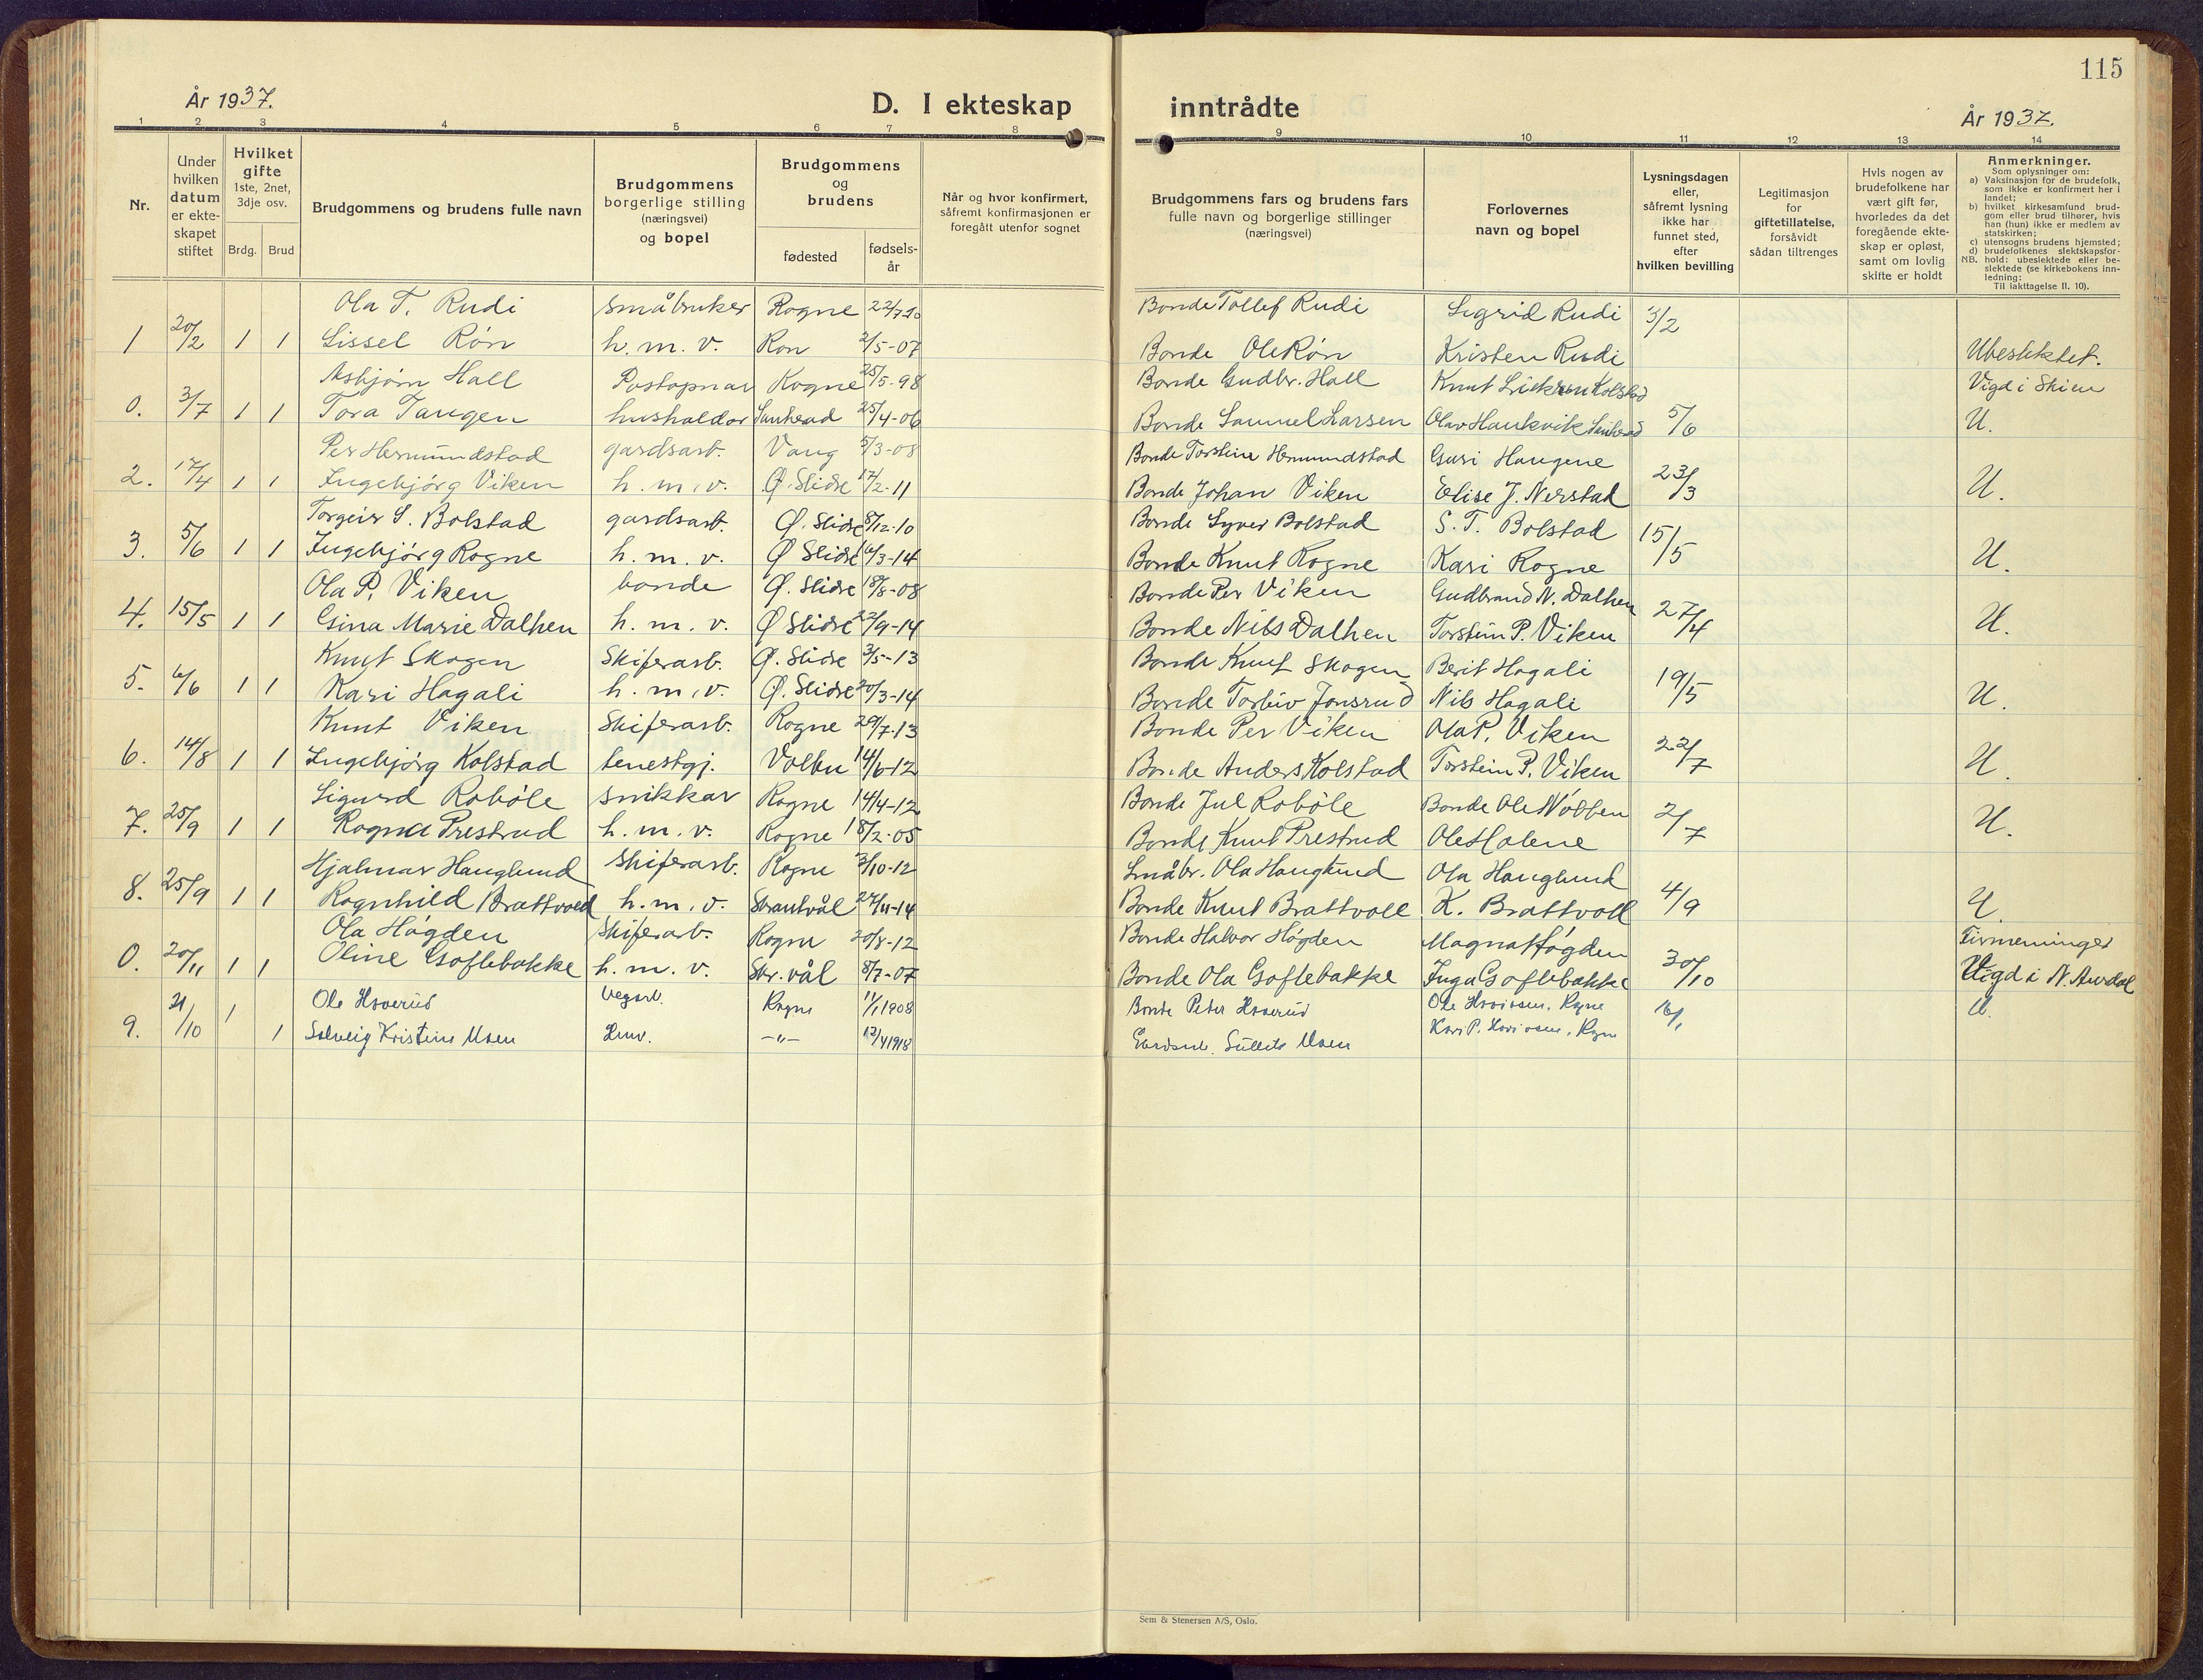 115
År 1937.
D. I ekteskap inntrådte
År 1937.
1 2 3 4 5 6 7 8 9 10 11 12 13 14
Nr.
Under hvilken datum er ekteskapet stiftet
Hvilket gifte 1ste, 2net, 3dje osv.
Brdg. Brud
Brudgommens og brudens fulle navn
Brudgommens borgerlige stilling (næringsvei) og bopel
Brudgommens og brudens
fødested
fødselsår
Når og hvor konfirmert, såfremt konfirmasjonen er foregått utenfor sognet
Brudgommens fars og brudens fars fulle navn og borgerlige stillinger (næringsvei)
Forlovernes navn og bopel
Lysningsdagen eller, såfremt lysning ikke har funnet sted, efter hvilken bevilling
Legitimasjon for giftetillatelse, forsåvidt sådan tiltrenges
Hvis nogen av brudefolkene har vært gift før, hvorledes da det foregående ekteskap er opløst, samt om lovlig skifte er holdt
Anmerkninger.
Som oplysninger om:
a) Vaksinasjon for de brudefolk, som ikke er konfirmert her i landet;
b) hvilket kirkesamfund brudgom eller brud tilhører, hvis han (hun) ikke er medlem av statskirken;
c) utensogns brudens hjemsted;
d) brudefolkenes slektskapsforhold: ubeslektede eller beslektede (se kirkebokens innledning:
NB.
Til iakttagelse II. 10).
Ola T. Rudi småbruker Rogne 22/7 10 Bonde Tollef Rudi Sigrid Rudi 3/2
1 20/2 1 1 Sissel Røn h. m. v. Røn 2/5-07 Bonde Ole Røn Kristen Rudi Ubeslektet.
Asbjørn Hall Postopnar Rogne 25/5-98 Bonde Gudbr. Hall Knut Kolstad Vigd i Skien
0. 3/7 1 1 Tora Tangen hushaldar Sauherad 25/4-06 Bonde Samuel Larsen Olav Haukvik Sauherad 5/6 U.
Per Hermundstad gardsarb. Vang 5/3-08 Bonde Torstein Hermundstad Guri Haugene
2. 17/4 1 1 Ingebjørg Viken h. m. v. Ø. Slidre 17/2-11 Bonde Johan Viken Elise J. Nerstad 23/3 U.
Torgeir S. Bolstad gardsarb. Ø. Slidre 8/12-10 Bonde Syver Bolstad S. T. Bolstad
3. 5/6 1 1 Ingebjørg Rogne h. m. v. Ø Slidre 6/3-14 Bonde Knut Rogne Kari Rogne 15/5 U.
Ola P. Viken bonde Ø. Slidre 18/8-08 Bonde Per Viken Gudbrand N. Dalhen
4. 15/5 1 1 Gina Marie Dalhen h. m. v. Ø Slidre 22/9-14 Bonde Nils Dalhen Torstein P. Viken 27/4 U.
Knut Skogen Skiferarb. Ø. Slidre 3/5-13 Bonde Knut Skogen Berit Hagali
5. 6/6 1 1 Kari Hagali h. m. v. Ø. Slidre 20/3-14 Bonde Jonsrud Nils Hagali 19/5 U.
Knut Viken Skiferarb. Rogne 29/7-13 Bonde Per Viken Ola P. Viken
6. 14/8 1 1 Ingebjørg Kolstad tenestgj. Volbu 14/6-12 Bonde Anders Kolstad Torstein P. Viken 22/7 U.
Sigurd Robøle snikkar Rogne 14/4-12 Bonde Jul Robøle Bonde Ole Nøbben
7. 25/9 1 1 Ragna Prestrud h. m. v. Rogne 18/2-05 Bonde Knut Prestrud Ole Holene 2/7 U.
Hjalmar Hauglund skiferarb. Rogne 3/10-12 Småbr. Ola Hauglund Ola Hauglund
8. 25/9 1 1 Ragnhild Brattvoll h. m. v. Skrautvål 27/11-14 Bonde Knut Brattvoll K. Brattvoll 4/9 U.
Ola Høgden Skiferarb. Rogne 20/8-12 Bonde Halvor Høgden Magna Høgden Tirmenninger
0. 20/11 1 1 Oline Goflebakke h. m. v. Skr. vål 8/7-07 Bonde Ola Goflebakke Inga Goflebakke 30/10 Vigd i N. Aurdal
Ole Hoverud Vegarb. Rogne 11/1 1908 Bonde Peter Hoverud Ole Rogne U.
9. 21/10 1 1 Solveig Kristine Moen Hmv. -"- 12/4 1918 Moen Kari P. Rogne 16/1
Sem & Stenersen A/S, Oslo.